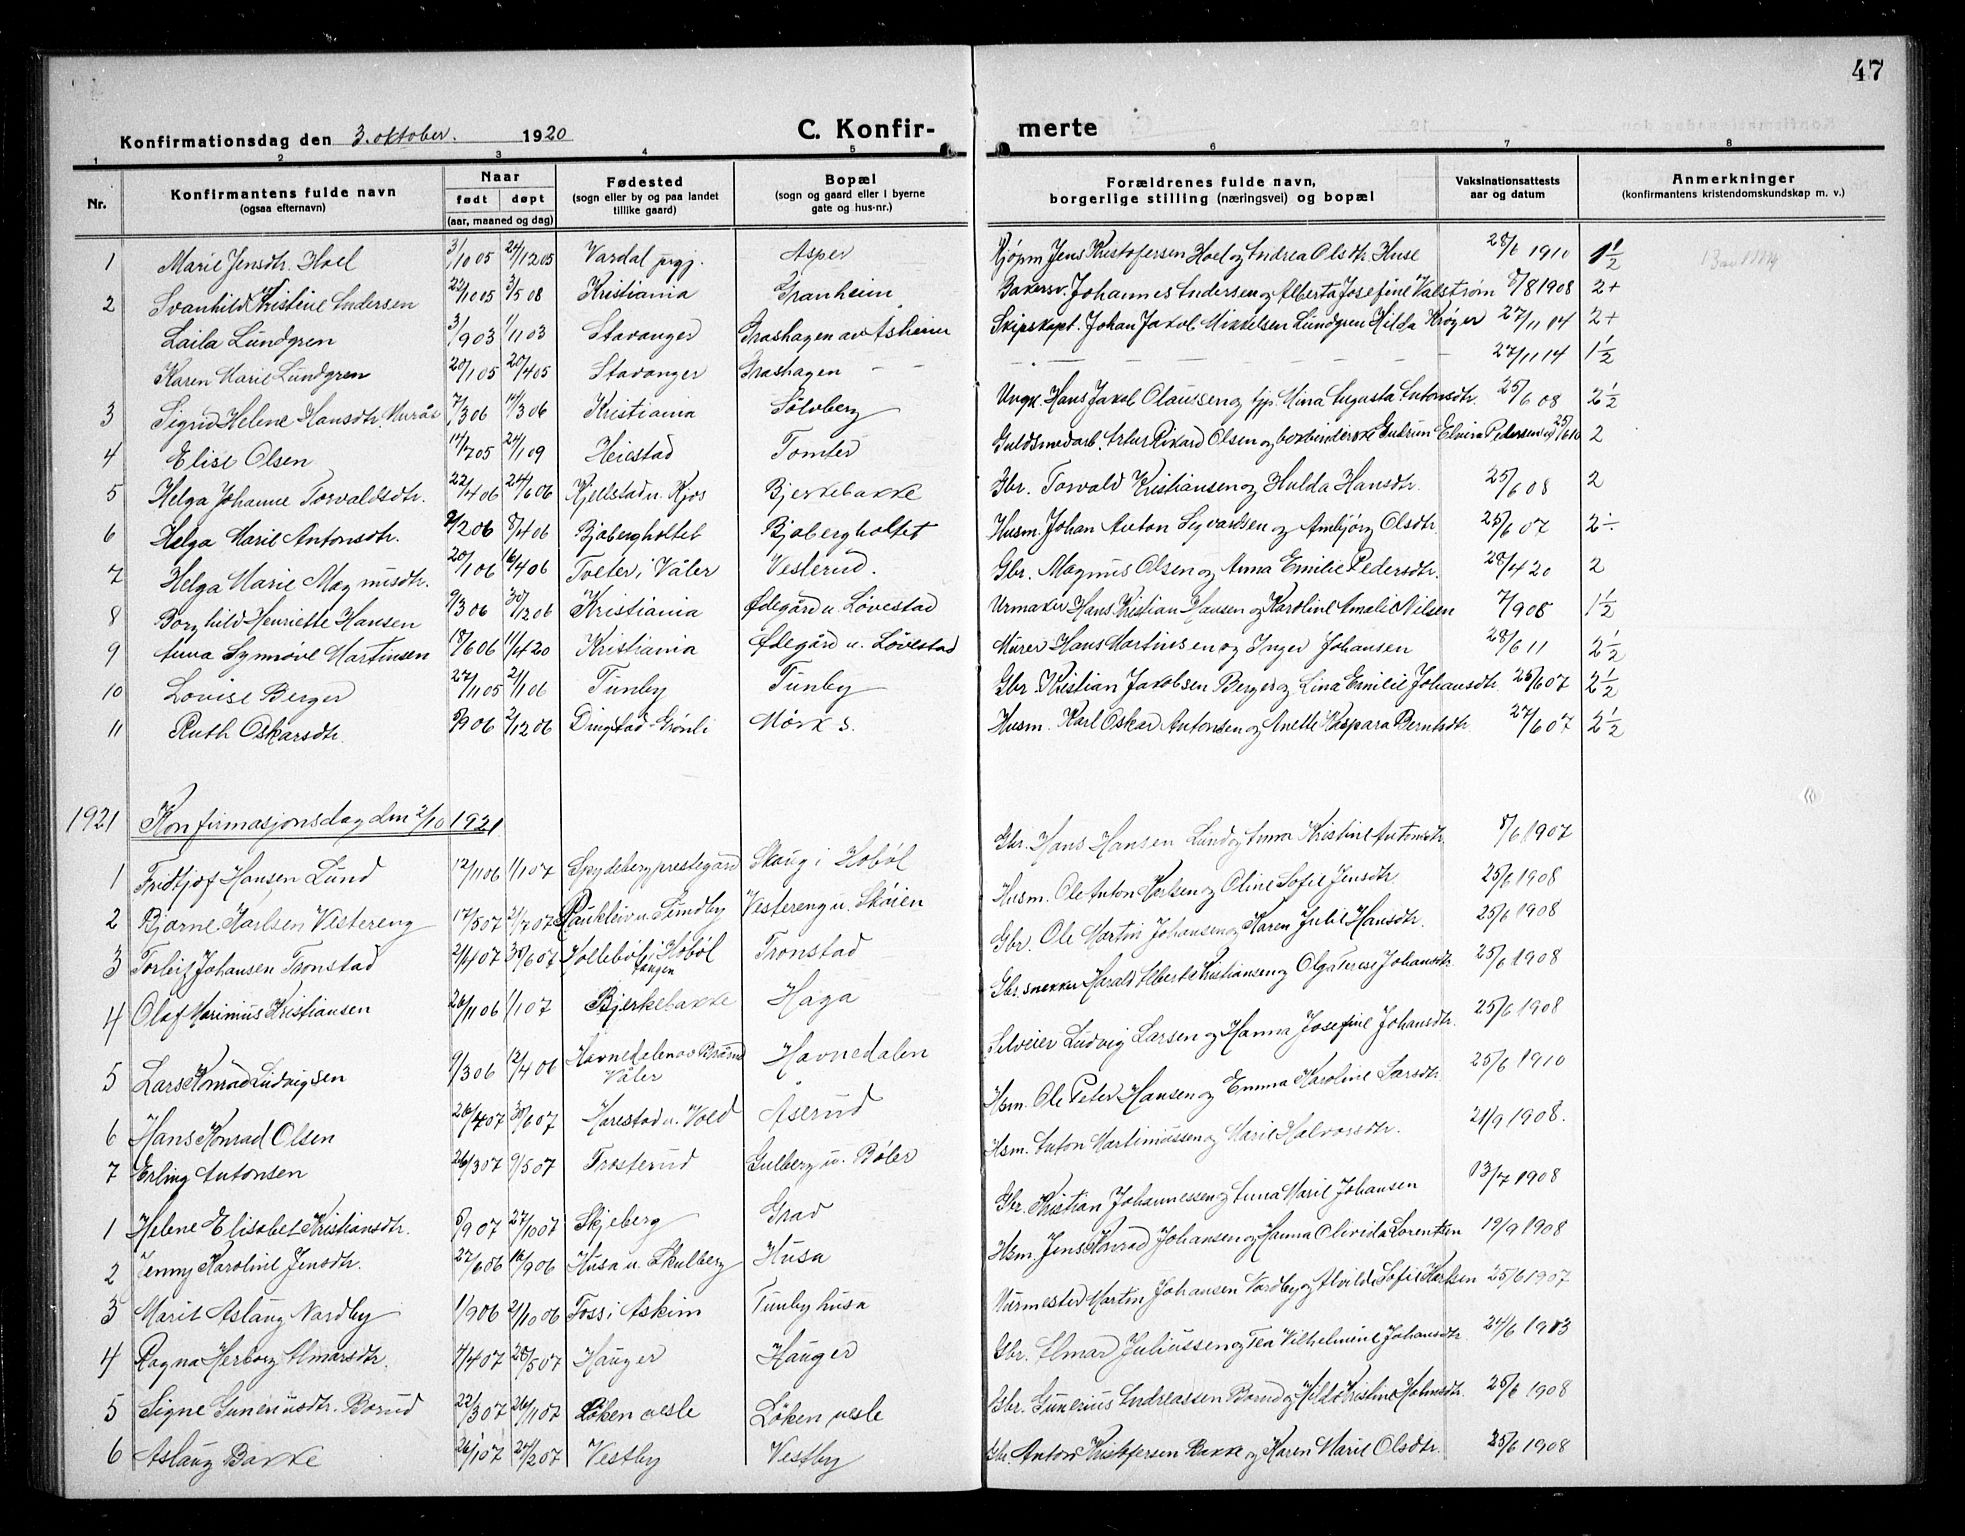 47
Konfirmationsdag den 3. oktober. 1920 C. Konfirmerte
1 2 3 4 5 6 7 8
Nr. Konfirmantens fulde navn (ogsaa efternavn) Naar født døpt (aar, maaned og dag) Fødested (sogn eller by og paa landet tillike gaard) Bopæl (sogn og gaard eller i byerne gate og hus-nr.) Forældrenes fulde navn, borgerlige stilling (næringsvei) og bopæl Vaksinationsattests aar og datum Anmerkninger (konfirmantens kristendomskundskap m. v.)
1 Marie Jensdtr. Hoel 3/10 05 24/12 05 Vardal prgj. Asper Kjøpm Jens Kristofersen Hoel og Andrea Olsdtr. Huse 28/6 1910 1 1/2
2 Svanhild Kristine Andersen 22/10 05 3/5 08 Kristiania Granheim Bakersv. Johannes Andersen og Alberta Josefine Valstrøm 7/8 1908 2+
Laila Lundgren 3/9 03 1/11 03 Stavanger Grashagen av Asheim Skipskapt. Johan Jakob Mikkelsen Lundgren Hilda Krøger 27/11 14 2+
Karen Marie Lundgren 20/1 05 20/4 05 Stavanger Grashagen - - - - - - 27/11 14 1 1/2
3 Sigrid Helene Hansdtr. Murås 7/3 06 14/3 06 Kristiania Sølvberg Ungk. Hans Jakob Olaussen og tjp. Mina Augusta Antonsdtr. 25/6 08 2 1/2
4 Elise Olsen 14/7 05 24/1 09 Heiestad Tomter Guldsmedarb. Artur Rikard Olsen og bokbinderske Gudrun Elvira Pedersen 25/6 10 2
5 Helga Johanne Torvaldsdtr. 22/4 06 24/6 06 Kjellstad u. Kjos Bjerkebakke Gbr. Torvald Kristiansen og Hulda Hansdtr. 25/6 08 2
6 Helga Marie Antonsdtr. 2/2 06 8/4 06 Bjabergholtet Bjabergholtet Husm. Johan Anton Syvardsen og Ambjørg Olsdtr 25/6 07 2÷
7 Helga Marie Magnusdtr. 20/1 06 16/4 06 Tveter i Våler Vesterud. Gbr. Magnus Olsen og Anna Emilie Pedersdtr. 28/4 20 2
8 Borghild Henriette Hansen 9/3 06 30/12 06 Kristiania Ødegård u. Løvestad Urmaker Hans Kristian Hansen og Karoline Amalie Nilsen 7/9 08 1 1/2
9 Anna Synnøve Martinsen 18/6 06 11/4 20 Kristiania Ødegård u. Løvestad Murer Hans Martinsen og Inger Johansen 28/6 11 2 1/2
10 Lovise Berger 27/11 05 21/1 06 Tunby Tunby Gbr. Kristian Jakobsen Berger og Lina Emilie Johansdtr. 25/6 07 2 1/2
11 Ruth Oskarsdtr. 8/9 06 2/12 06 Dingstad-Grønli Mørk s. Husm. Karl Oskar Antonsen og Anette Kaspara Berntsdtr. 27/6 07 2 1/2
1921 Konfirmasjonsdag den 2/10 1921
1 Fridtjof Hansen Lund 12/11 06 1/1 07 Spydeberg prestegård Skaug i Hobøl Gbr. Hans Hansen Lund og Anna Kristine Antonsdtr. 8/6 1907
2 Bjarne Karlsen Vestereng 17/5 07 21/7 07 Raukleiv u. Sundby Vestereng u. Skøien Husm. Ole Anton Karlsen og Oline Sofie Jensdtr. 25/6 1908
3 Torleif Johansen Tronstad 21/4 07 30/6 07 Tollebøl i Hobøl Tronstad Gbr. Ole Martin Johansen og Karen Julie Hansdtr. 25/6 1908
4 Olaf Marinius Kristiansen 26/11 06 1/1 07 Bjerkebakke Haga Gbr. snekker Harald Albert Kristiansen og Olga Terese Johansdtr 25/6 1908
5 Lars Konrad Ludvigsen 9/3 06 12/4 06 Havnedalen av Våler Havnedalen Selveier Ludvig Larsen og Hanna Josefine Johansdtr. 25/6 1908
6 Hans Konrad Olsen 26/4 07 30/6 07 Harestad u. Vold Åserud Hsm. Ole Peter Hansen og Emma Karoline Larsdtr. 25/6 1910
7 Erling Antonsen 26/3 07 9/5 07 Trosterud Gulberg u. Bøler Hsm. Anton Martinussen og Marie Halvorsdtr. 21/9 1908.
1 Helene Elisabet Kristiansdtr. 8/9 07 27/10 07 Skjeberg Grad Gbr. Kristian Johannessen og Anna Marie Johansen 13/7 1908
2 Jenny Karoline Jensdtr. 27/6 06 16/9 06 Husa u. Skulberg Husa Hsm. Jens Konrad Johansen og Hanna Olivida Lorentsen 19/9 1908
3 Marit Aslaug Nordby 1/9 06 21/10 06 Foss i Askim Tunby husa Murmester Martin Johansen Nordby og Alvilde Sofie Karlsen 25/6 1907
4 Ragna Herborg Almarsdtr. 4/4 07 20/5 07 Hauger Hauger Gbr. Elmar Juliussen og Tea Vilhelmine Johansdtr. 24/6 1913
5 Signe Guneriusdtr. Borud 22/3 07 26/11 07 Løken vesle Løken vesle Gbr. Gunerius Andreassen Borud og Hilda Kristine Holmsdtr. 25/6 1908
6 Aslaug Bakke 26/1 07 24/2 07 Vestby Vestby Gbr. Anton Kristofersen Bakke og Karen Marie Olsdtr. 25/6 1908